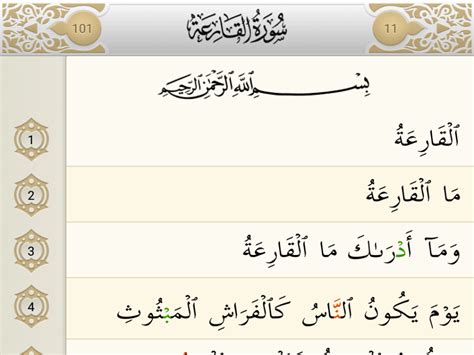 101 سُورَةُ القَارِعَةِ 11
بِسْمِ ٱللَّهِ ٱلرَّحْمَٰنِ ٱلرَّحِيمِ
1 ٱلْقَارِعَةُ
2 مَا ٱلْقَارِعَةُ
3 وَمَآ أَدْرَىٰكَ مَا ٱلْقَارِعَةُ
4 يَوْمَ يَكُونُ ٱلنَّاسُ كَٱلْفَرَاشِ ٱلْمَبْثُوثِ